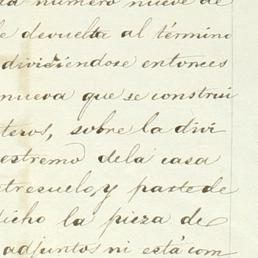 da numero nueve de
le devuelta al término
dividiéndose entonces
nueva que se construi
teros, sobre la divi
estremo dela casa
tresuelo, y parte de
dicho la pieza de
adjuntos ni está com